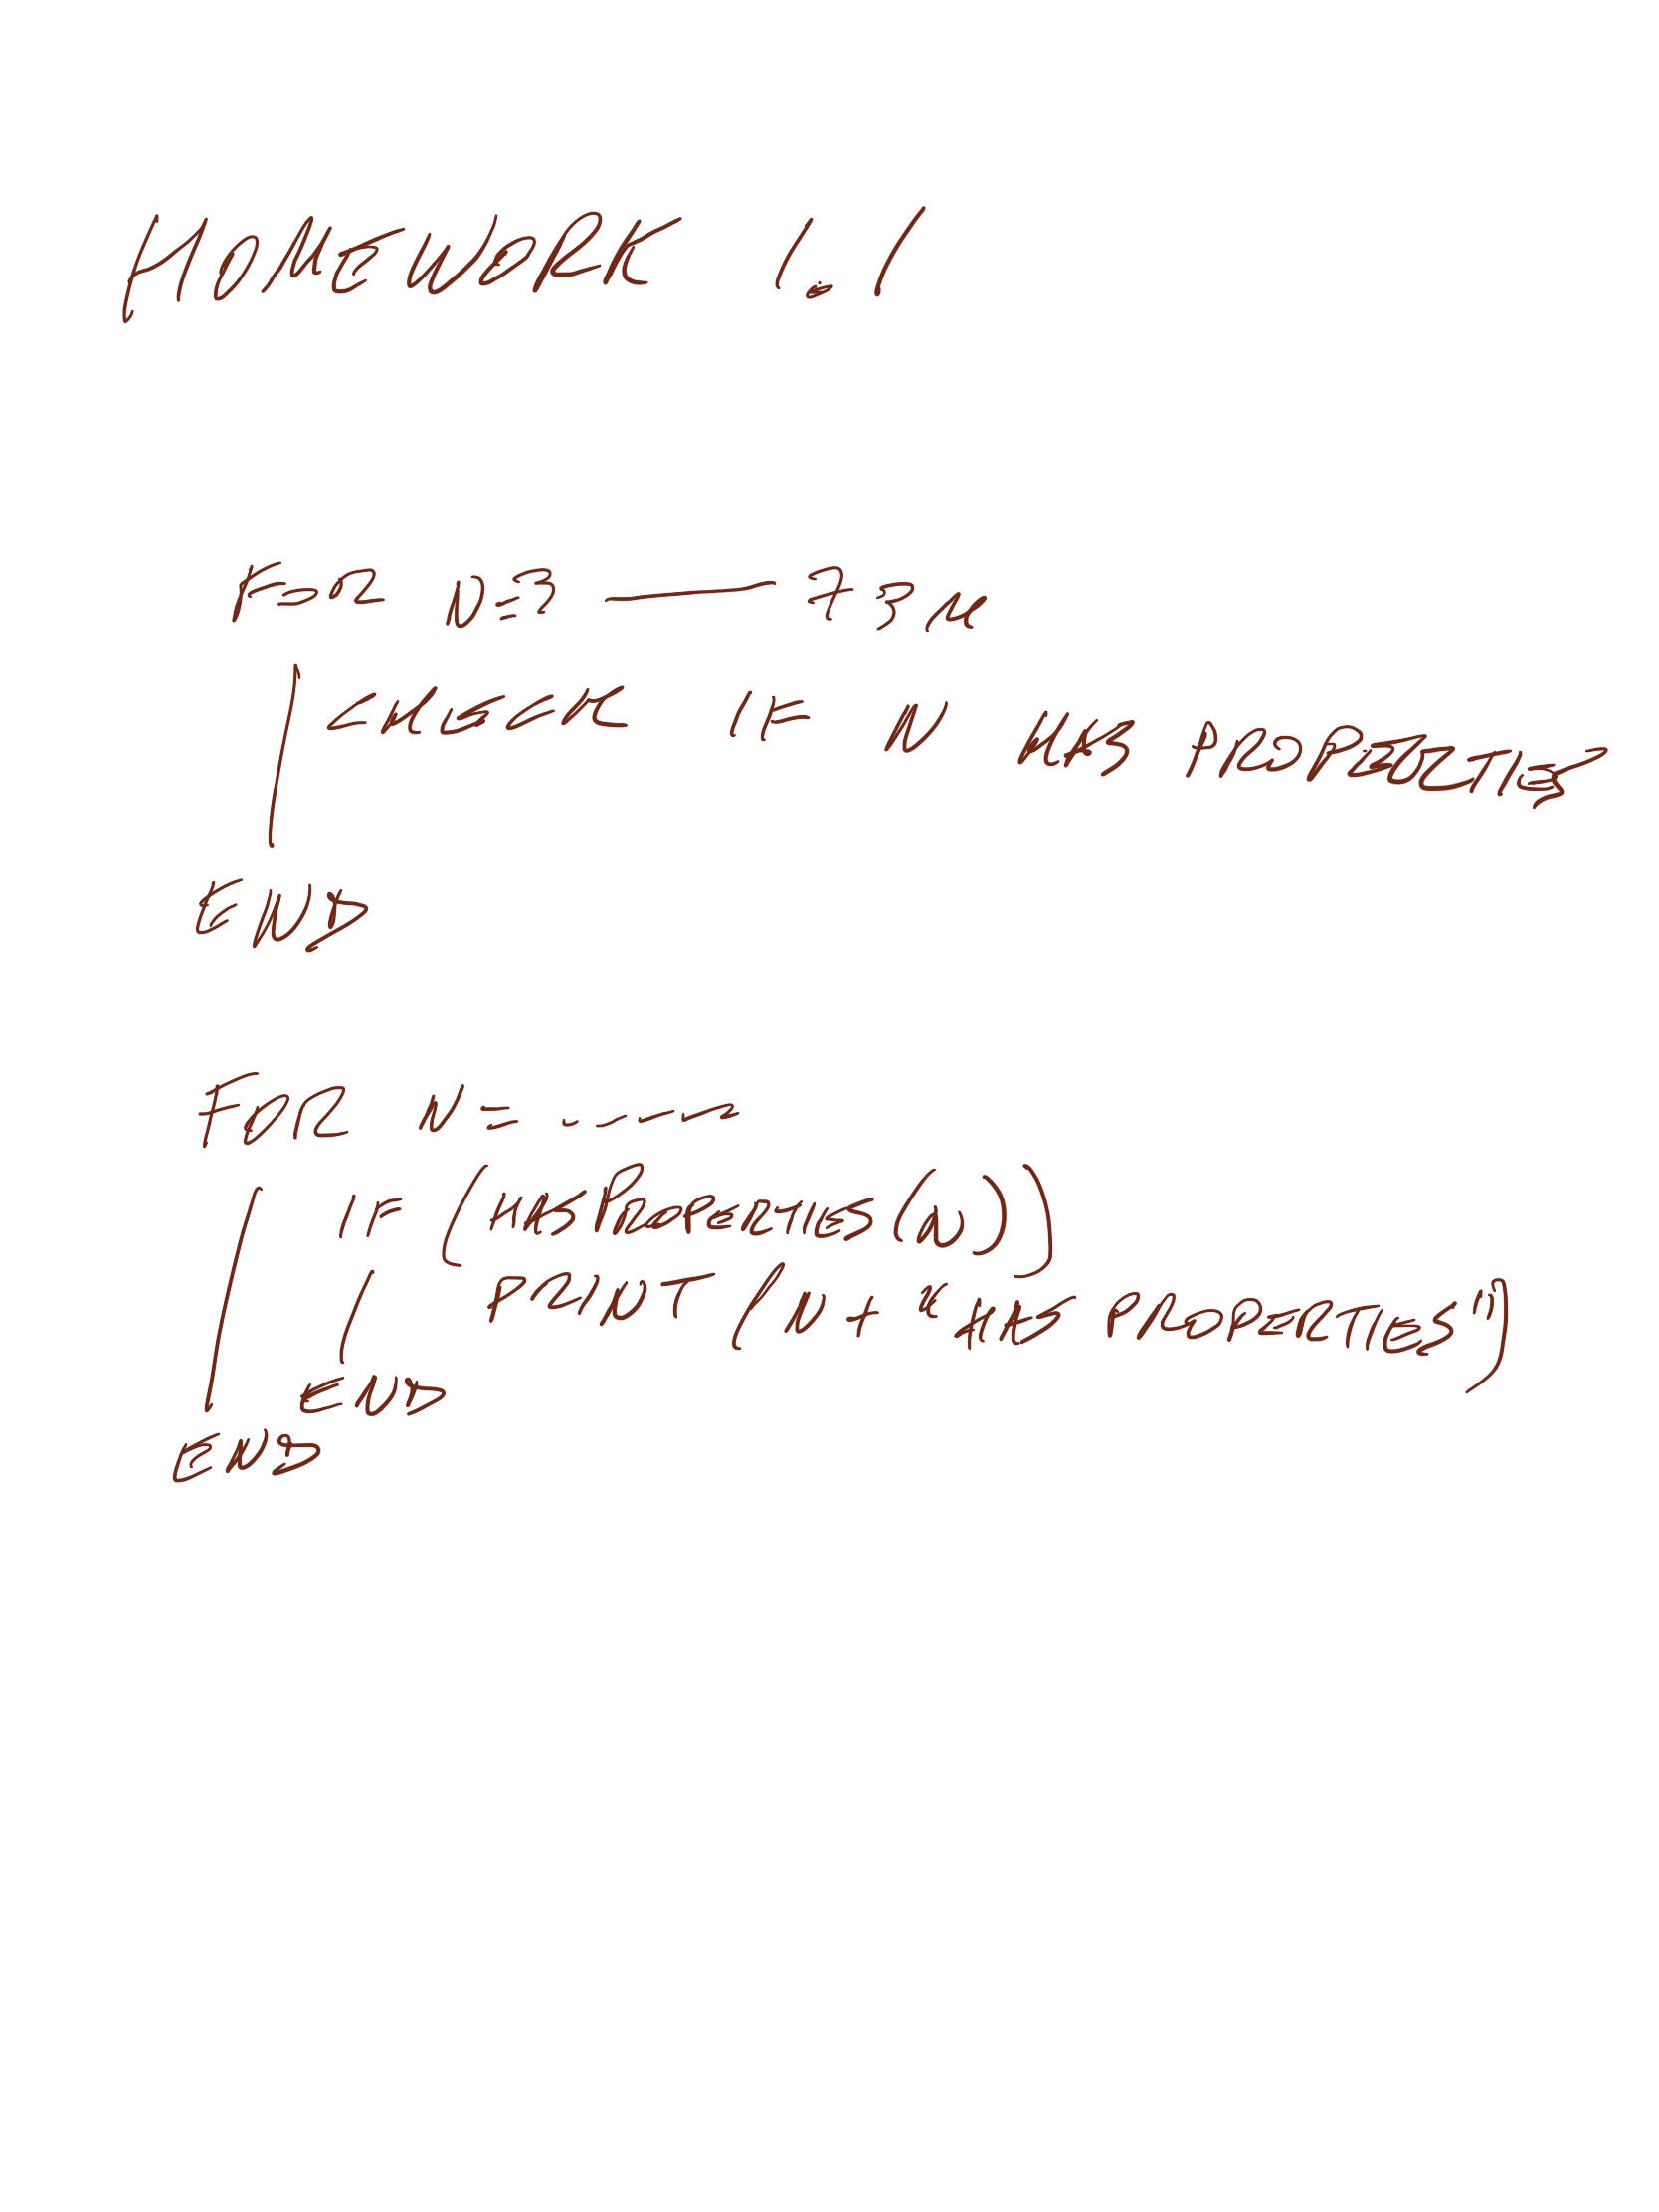 HOMEWORK 1.1
FOR N=3 — 73M
CHECK IF N HAS PROPERTIES
END
FOR N= .----
IF (HASPROPERTIES(N))
PRINT (N + "HAS PROPERTIES")
END
END